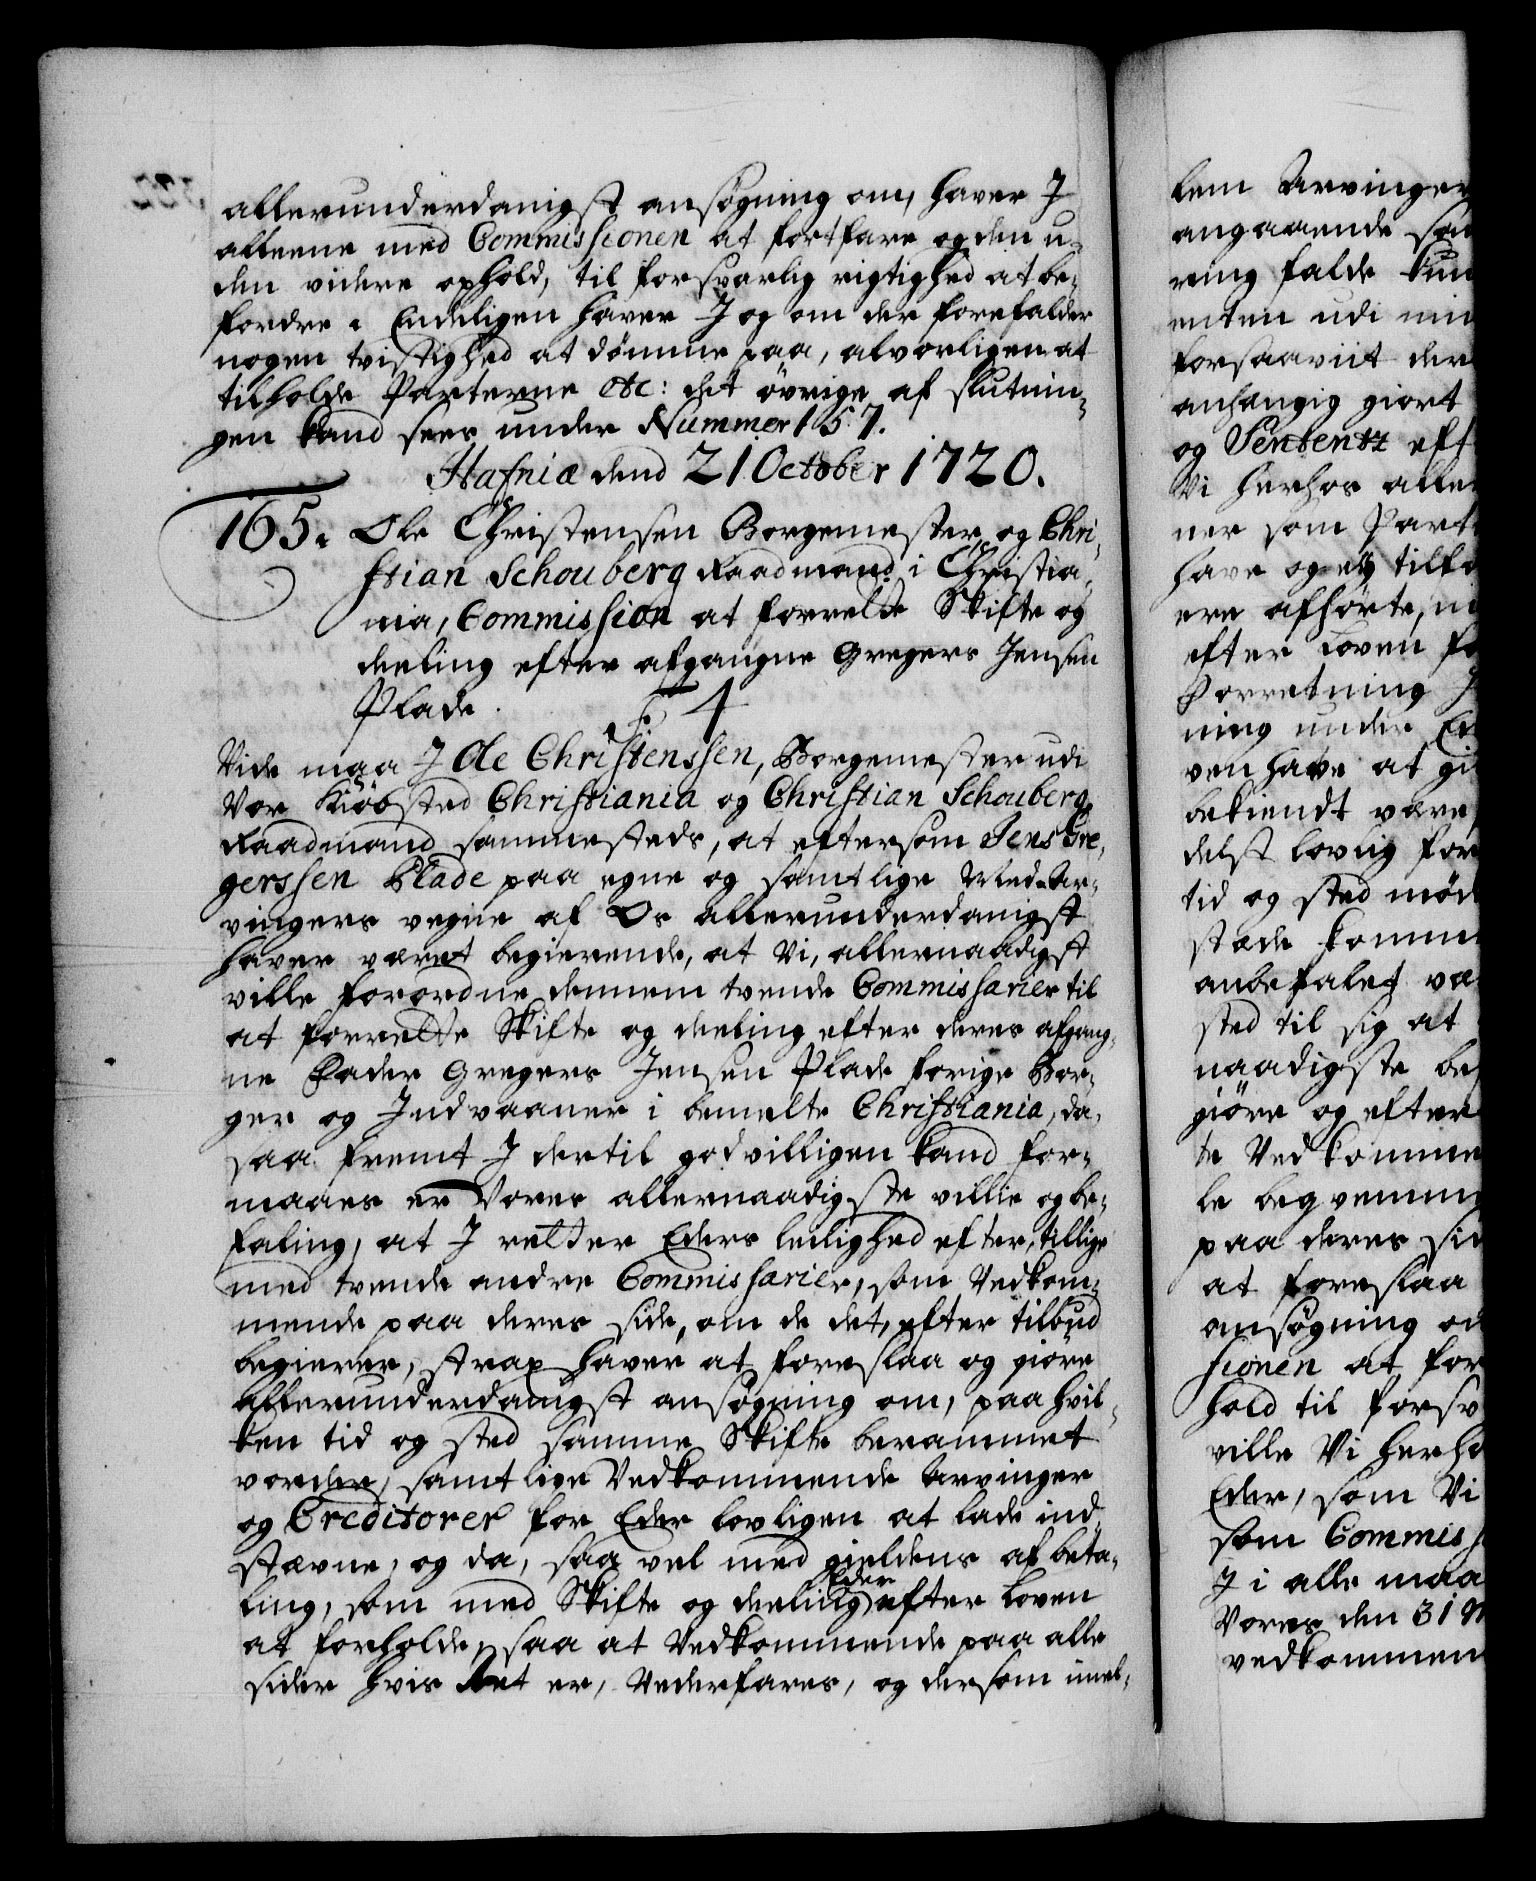 allerunderdanigst ansøgning om, haver J
alleene med Commissionen at fortfare og den u-
den videre ophold, til forsvarlig rigtighed at be-
fordre. Endeligen haver J og om der forefalder
nogen tvistighed at dömme paa, alvorligen at
tilholde Parterne etc: det övrige af slutnin-
gen kand sees under Nummer 157.
Hafniæ dend 21 October 1720.
165. Ole Christensen Borgemester og Chri-
stian Schouberg Raadmand i Christia-
nia, Commission at forrette Skifte og
deeling efter afgangne Gregers Jensen
Plade.
F. 4
Vide maa J Ole Christenssen, Borgemester udi
Vor Kiöbsted Christiania og Christian Schouberg
Raadmand sammesteds, at eftersom Jens Gre-
gerssen Plade paa egne og samtlige Med-Ar-
vingers vegne af Os allerunderdanigst
haver været begierende, at Vi, allernaadigst
ville forordne dennem tvende Commissarier til
at forrette Skifte og deeling efter deres afgang-
ne Fader Gregers Jensen Plade forige Bor-
ger og Indvaaner i bemelte Christiania, da,
saa fremt J dertil godvilligen kand for-
maaes er Vores allernaadigste villie og be-
faling, at J retter Eders leilighed efter, tillige
med tvende andre Commissarier, som Vedkom-
mende paa deres side, om de det, efter tilbud
begierer, strax haver at foreslaa og giöre
allerunderdanigst ansøgning om, paa hvil-
ken tid og sted samme Skifte berammet
vorder, samtlige Vedkommende Arvinger
og Creditorer for Eder lovligen at lade ind-
stævne, og da, saa vel med gieldens afbeta-
ling, som med Skifte og deeling Eder efter Loven
at forholde, saa at Vedkommende paa alle
sider hvis Ret er, Vederfares, og dersom imel-
lem Arvinger
angaaende
ring falde kun
enten udi min
forsaaviit der
anhængig giort
og Sententz eft
Vi herhos aller
ner som Part
have og ey tilfo
ere afhörte,
efter Loven fo
Forretning J
ning under
ven have at gi
bekiendt være,
delst lovlig for
tid og sted möd
stæde komm
anbefalet væ
sted til sig at
naadigste be
giöre og efter
te Vedkomme
le beqvemm
paa deres si
at foreslaa
ansøgning o
sionen at for
hold til forsv
ville Vi herho
Eder, som Vi
som Commis
J i alle maa
Vores den 31
vedkommen